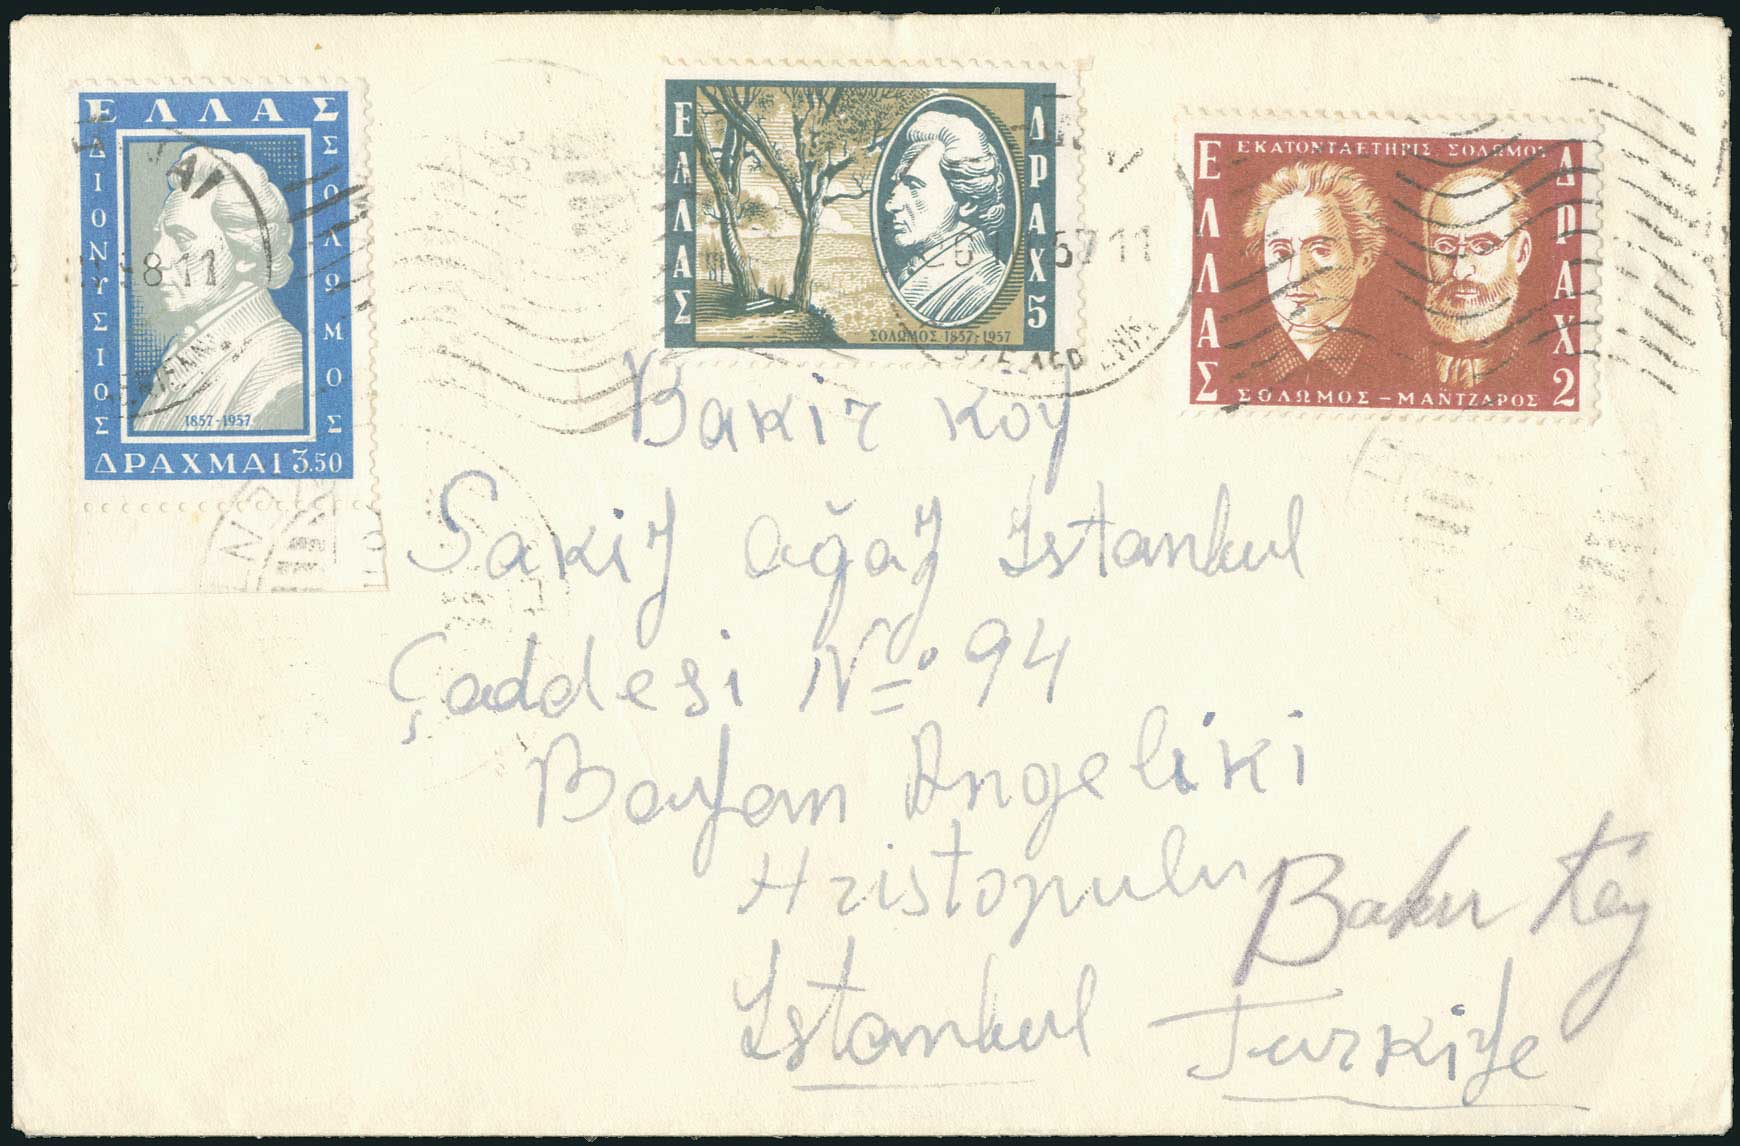 ΕΛΛΑΣ
ΔΙΟΝΥΣΙΟΣ
ΣΟΛΩΜΟΣ
1857-1957
ΔΡΑΧΜΑΙ 3.50
ΕΛΛΑΣ
ΔΡΑΧ 5
ΣΟΛΩΜΟΣ 1857-1957
ΕΚΑΤΟΝΤΑΕΤΗΡΙΣ ΣΟΛΩΜΟΥ
ΕΛΛΑΣ
ΔΡΑΧ 2
ΣΟΛΩΜΟΣ – ΜΑΝΤΖΑΡΟΣ
Bakir koy
Sakiz ağaz Istanbul
Çaddesi No 94
Bayan Angeliki
Hristopulu
Bakır Köy
Istanbul Turkiye